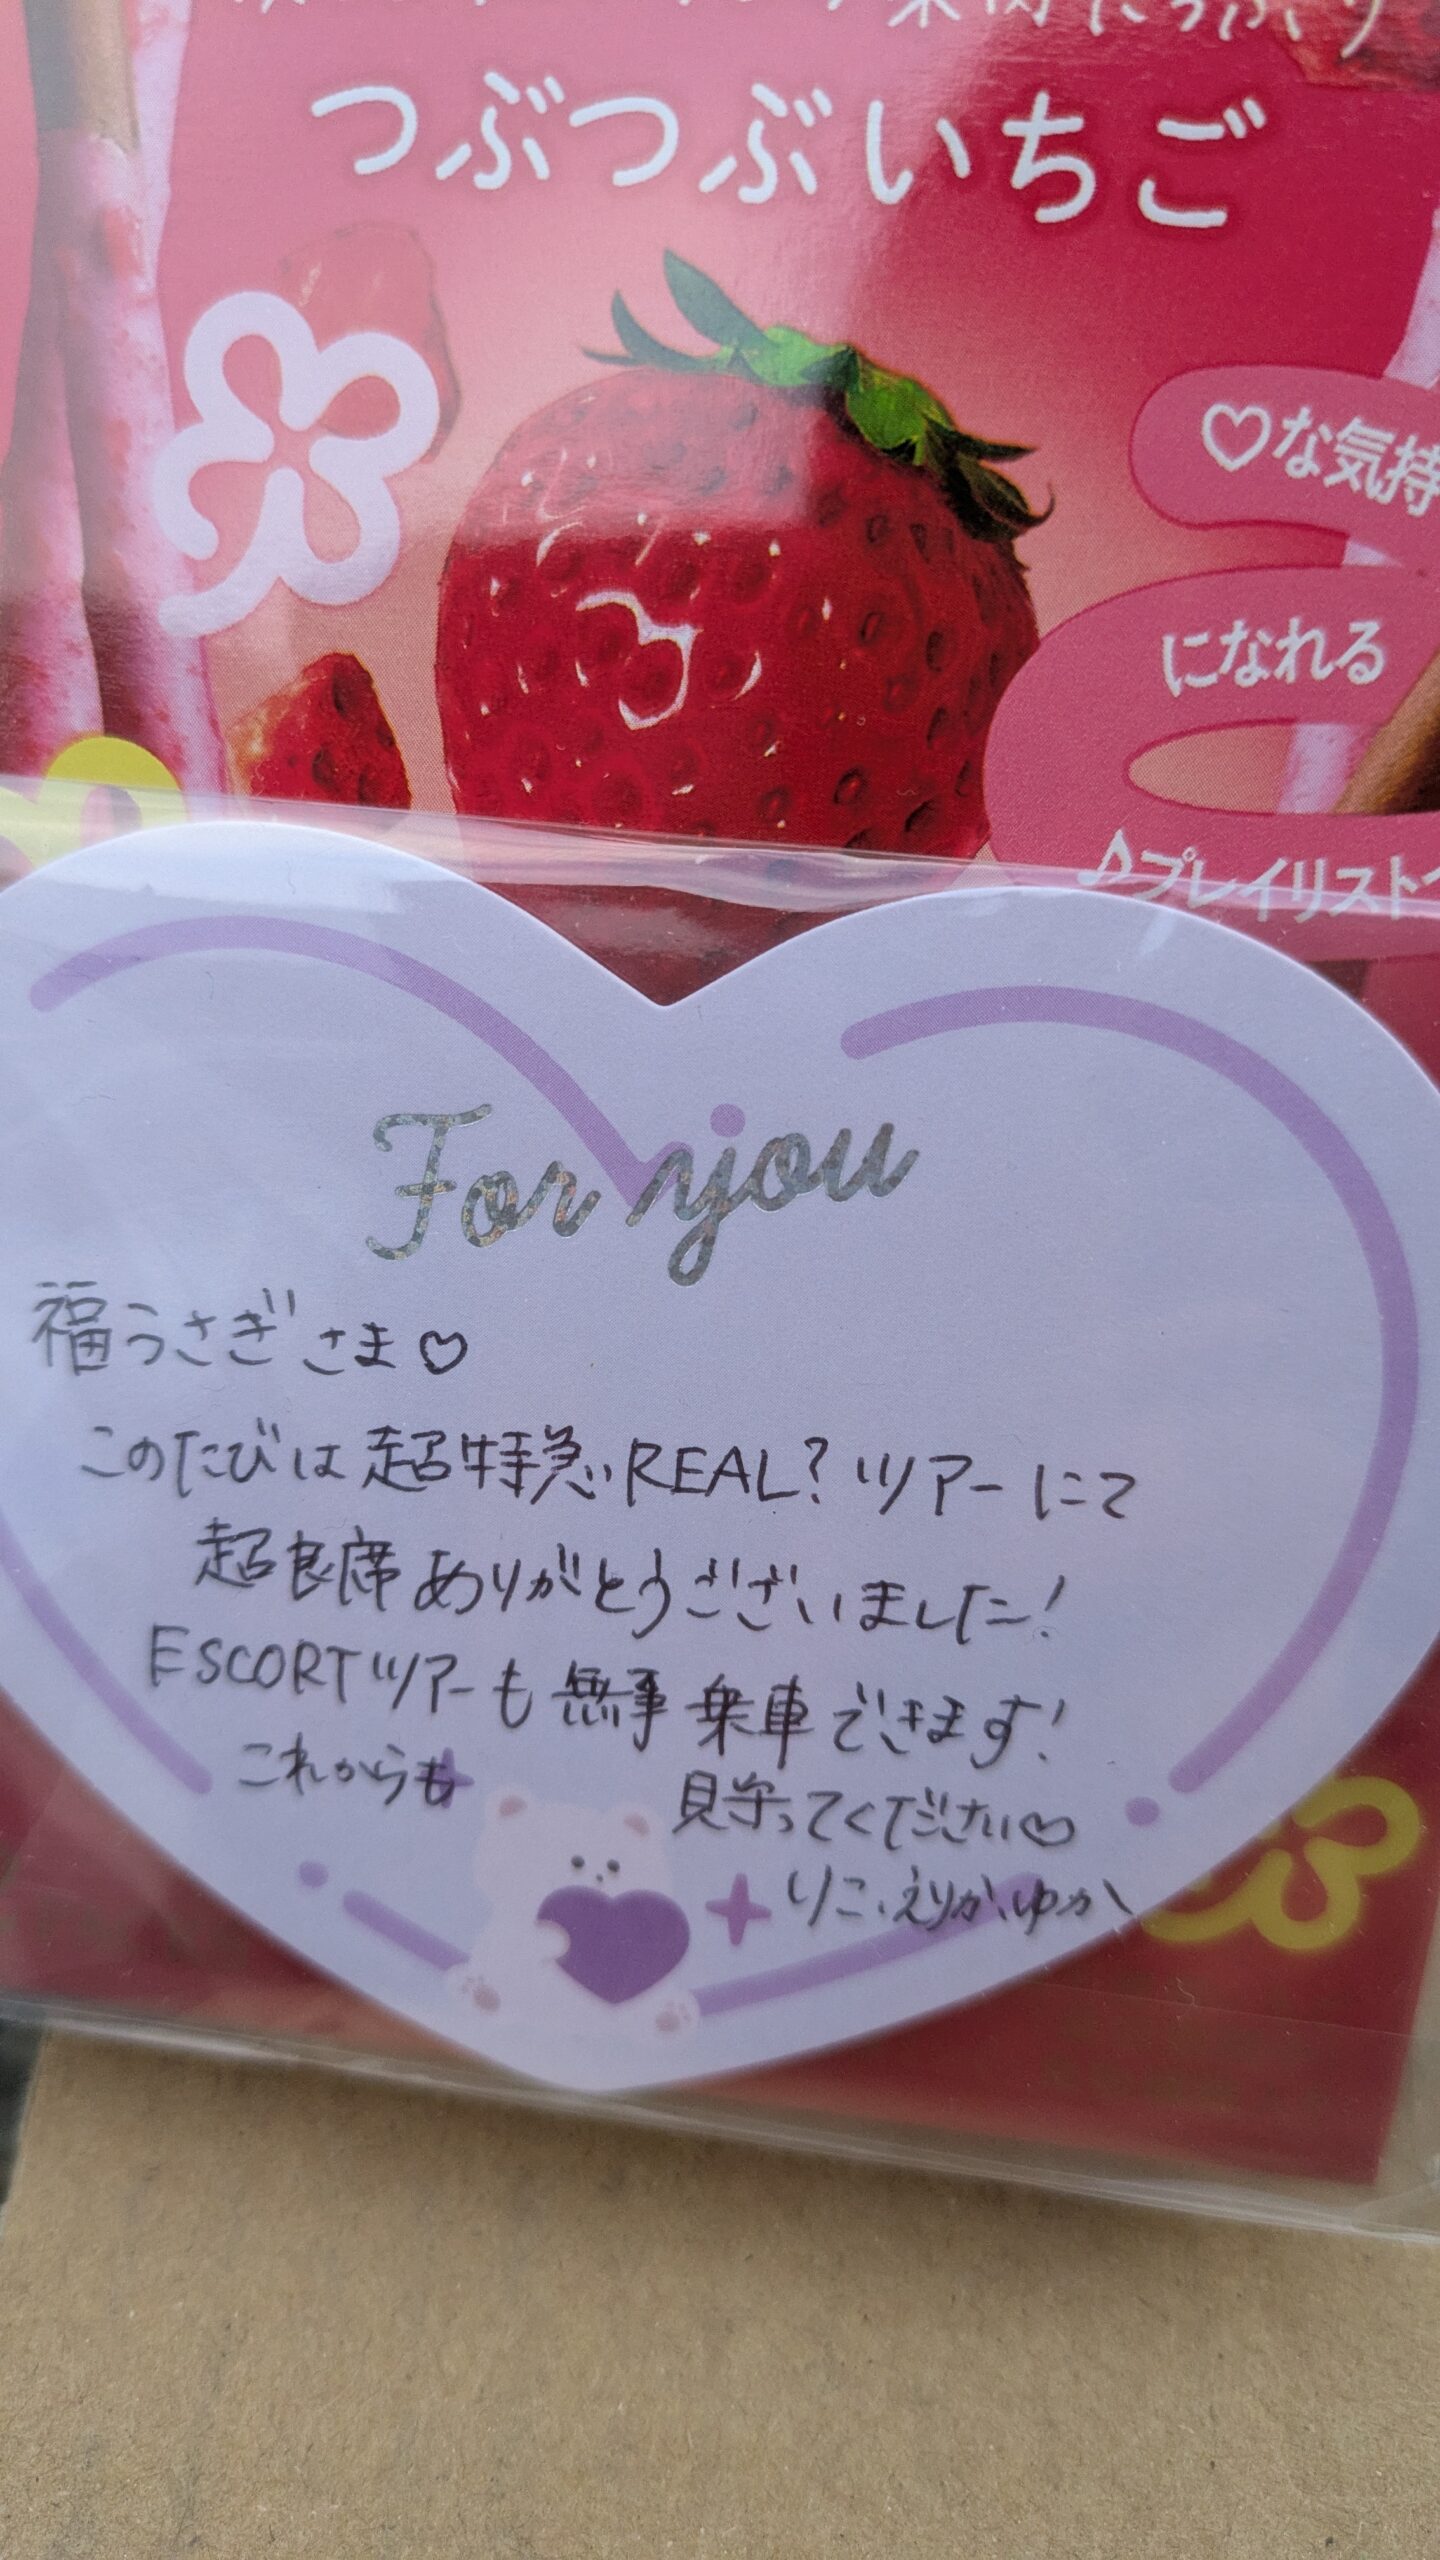 つぶつぶいちご
♡な気持
になれる
♪プレイリスト
For you
福うさぎさま♡
このたびは超特急REAL?ツアーにて
超良席ありがとうございました!
ESCORTツアーも無事乗車できます!
これからも 見守ってください♡
りこ、えりか、ゆか